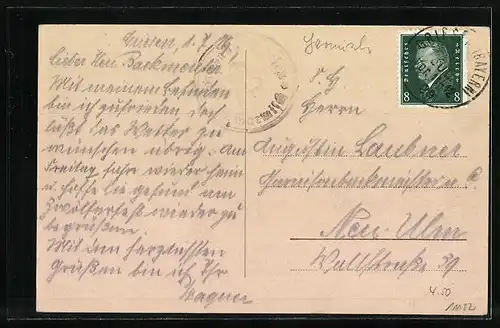 Lieber Herr Backmeister
Mit meinem Befinden
bin ich zufrieden doch
läßt das Wetter zu
wünschen übrig. Am
Freitag fahr wieder heim
u hoffe Sie gesund am
wieder zu
begrüßen.
Mit den herzlichsten
Grüßen bin ich Ihr
Wagner
Deutsches Reich
8 8
(BAYERN)
Herrn
Augustin Laubner
Garnisonbackmeister a.
Neu-Ulm
Wallstraße 59
4.50